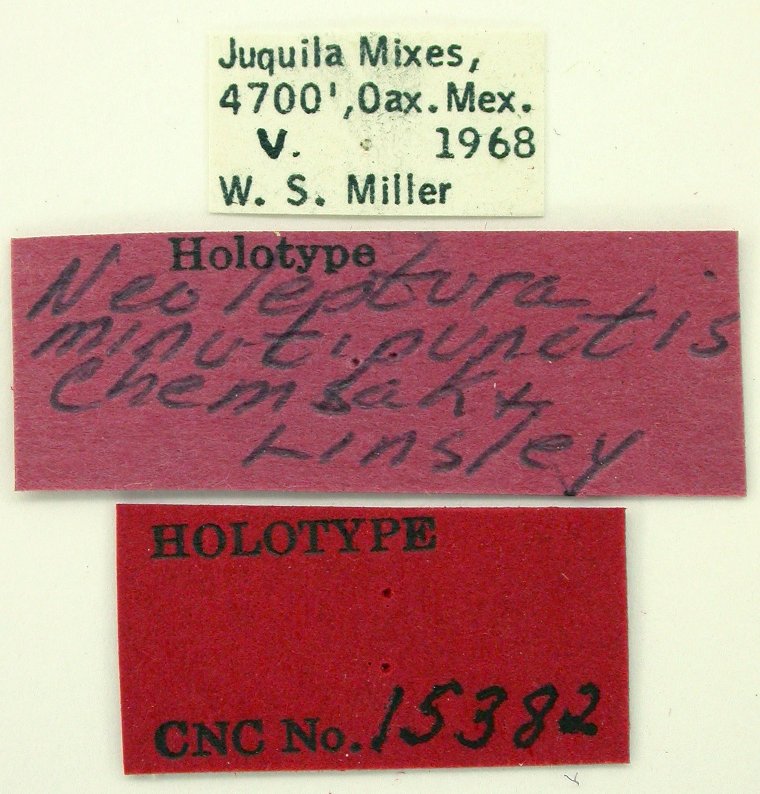 Juquila Mixes,
4700',Oax.Mex.
V. 1968
W. S. Miller
Holotype
Neoleptura
minutipunctis
Chemsak &
Linsley
HOLOTYPE
CNC No. 15382